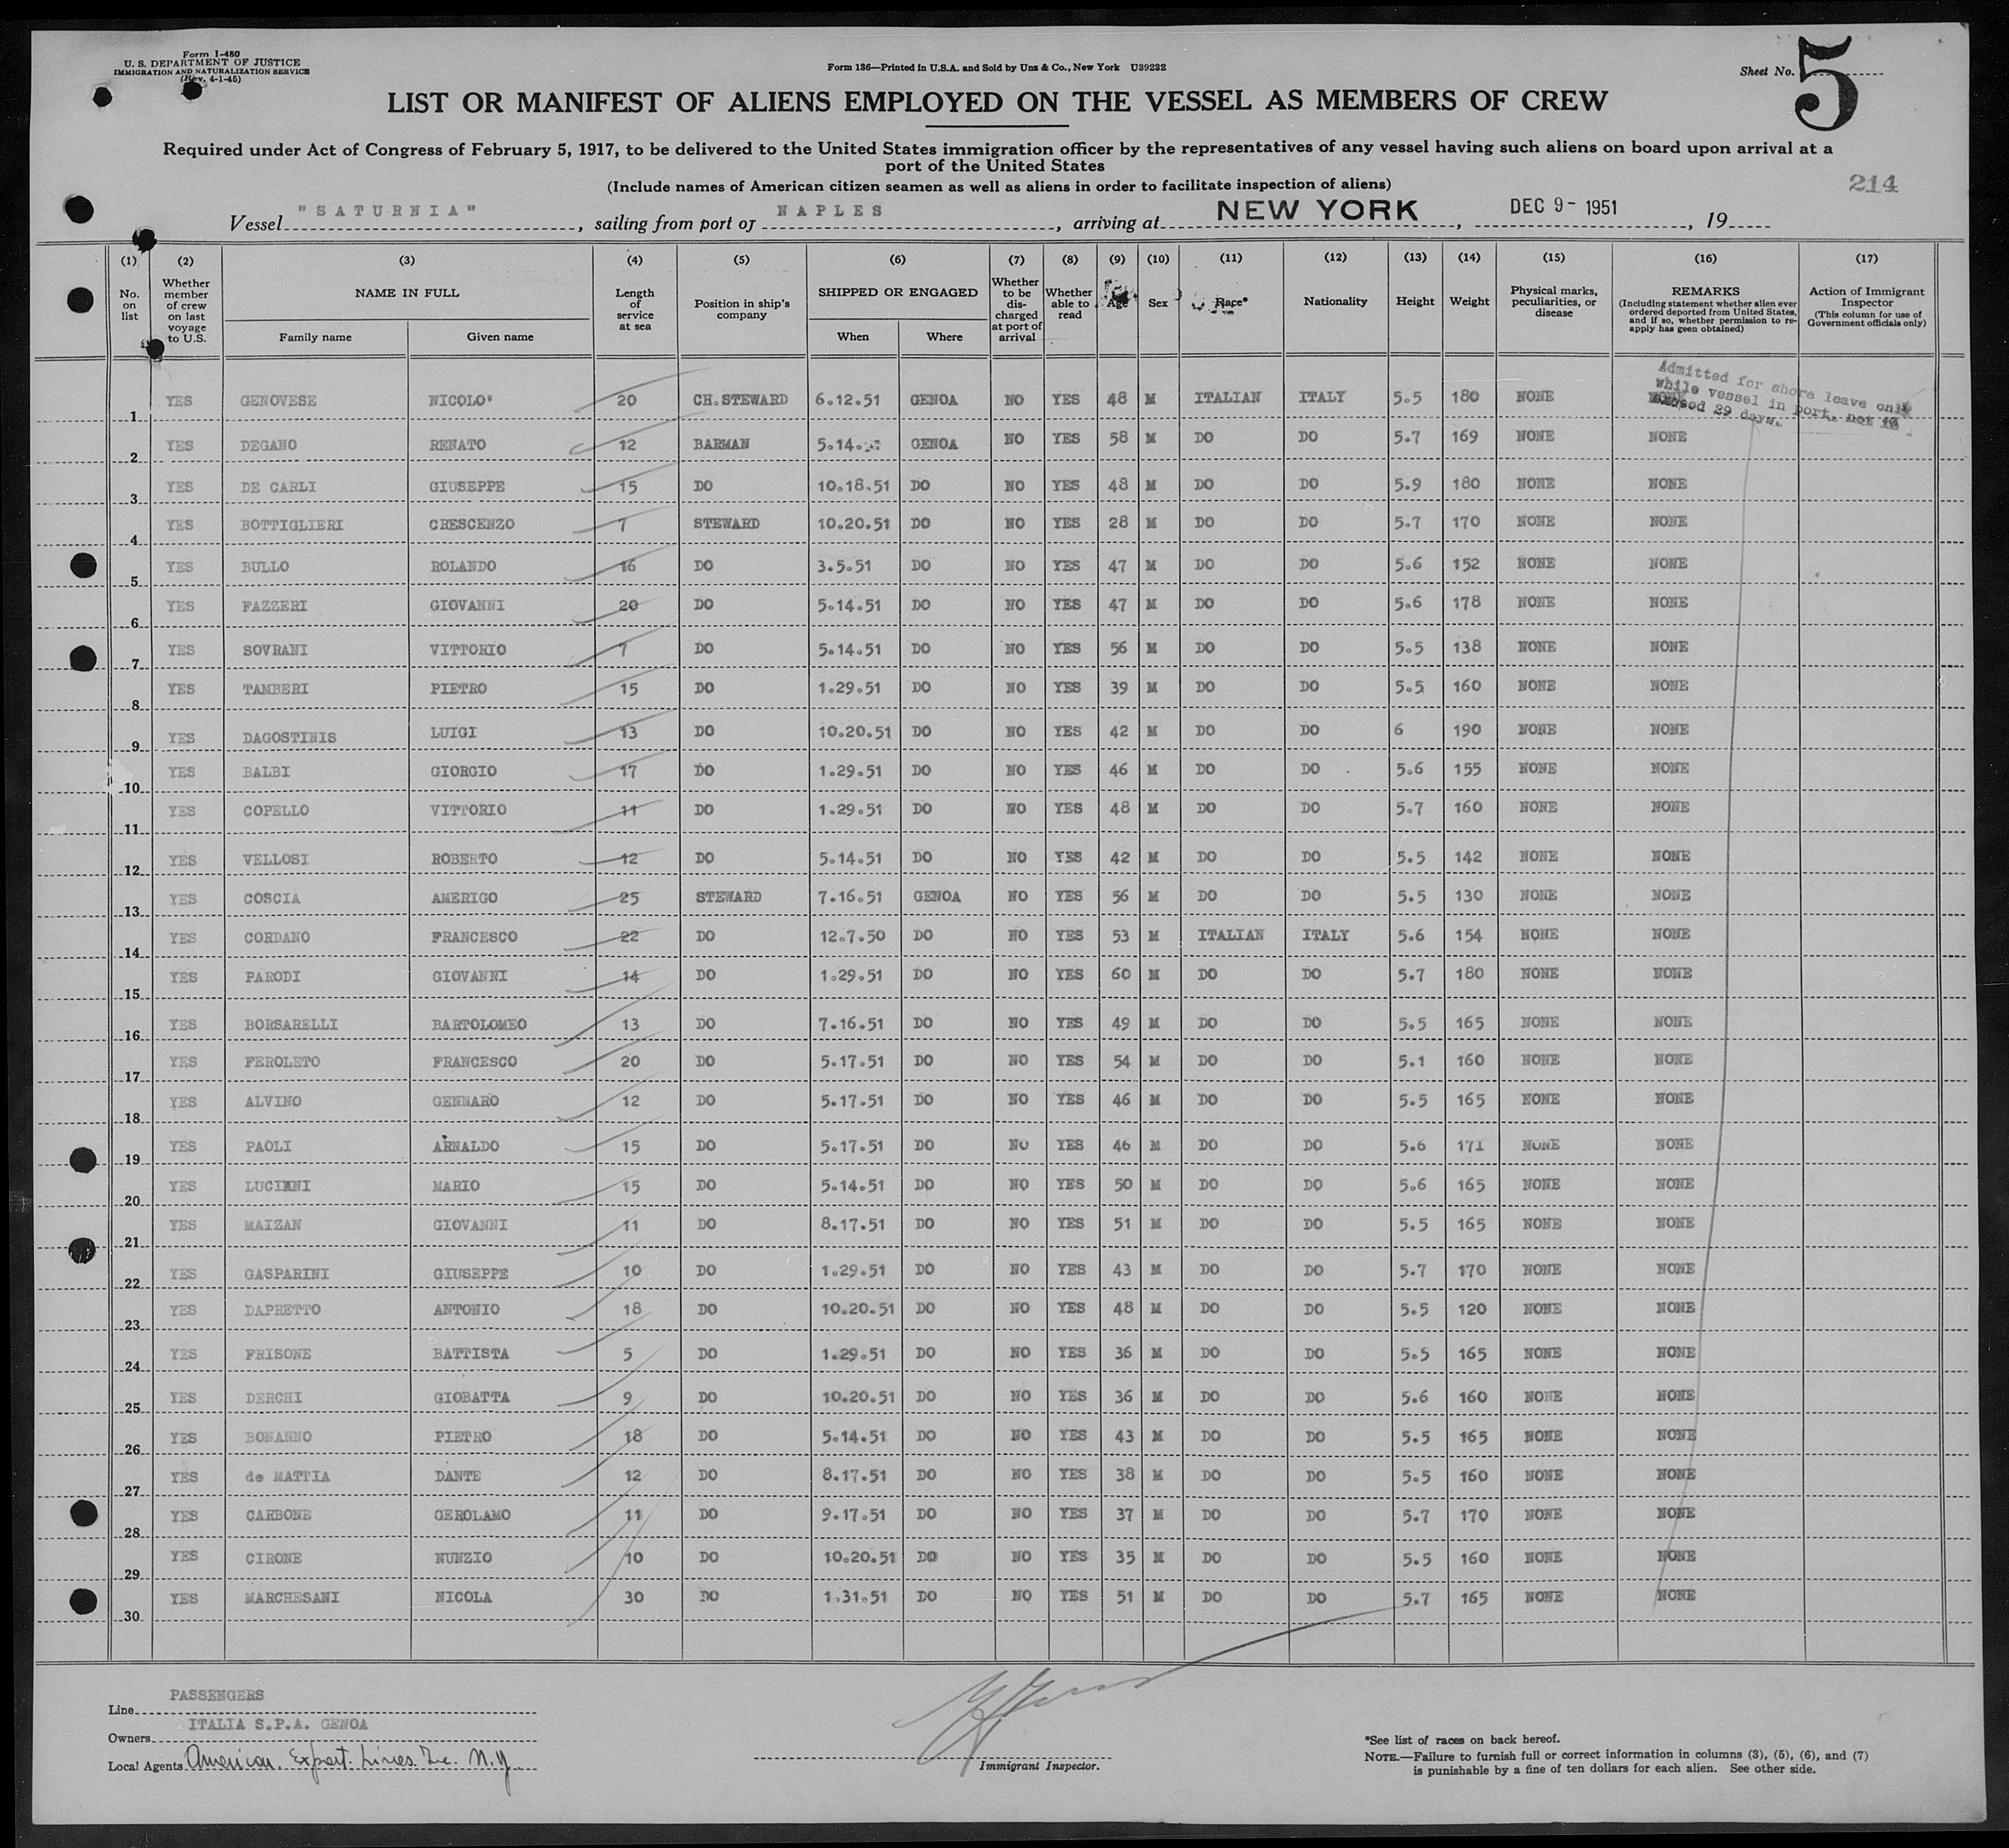 Form I-480
U. S. DEPARTMENT OF JUSTICE
IMMIGRATION AND NATURALIZATION SERVICE
(Rev. 4-1-45)
Form 136—Printed in U.S.A. and Sold by Unz & Co., New York U39232
Sheet No. 5
LIST OR MANIFEST OF ALIENS EMPLOYED ON THE VESSEL AS MEMBERS OF CREW
Required under Act of Congress of February 5, 1917, to be delivered to the United States immigration officer by the representatives of any vessel having such aliens on board upon arrival at a
port of the United States
(Include names of American citizen seamen as well as aliens in order to facilitate inspection of aliens)
214
Vessel "SATURNIA", sailing from port of NAPLES, arriving at NEW YORK, DEC 9- 1951, 19
(1) (2) (3) (4) (5) (6) (7) (8) (9) (10) (11) (12) (13) (14) (15) (16) (17)
No. on list
Whether member of crew on last voyage to U.S.
NAME IN FULL
Family name
Given name
Length of service at sea
Position in ship's company
SHIPPED OR ENGAGED
When
Where
Whether to be discharged at port of arrival
Whether able to read
Age
Sex
Race*
Nationality
Height
Weight
Physical marks, peculiarities, or disease
REMARKS
(Including statement whether alien ever ordered deported from United States, and if so, whether permission to reapply has geen obtained)
Action of Immigrant Inspector
(This column for use of Government officials only)
Admitted for shore leave only
while vessel in port, not to
exceed 29 days.
1 YES GENOVESE NICOLO' 20 CH.STEWARD 6.12.51 GENOA NO YES 48 M ITALIAN ITALY 5.5 180 NONE
2 YES DEGANO RENATO 12 BARMAN 5.14. GENOA NO YES 58 M DO DO 5.7 169 NONE NONE
3 YES DE CARLI GIUSEPPE 15 DO 10.18.51 DO NO YES 48 M DO DO 5.9 180 NONE NONE
4 YES BOTTIGLIERI CRESCENZO 7 STEWARD 10.20.51 DO NO YES 28 M DO DO 5.7 170 NONE NONE
5 YES BULLO ROLANDO 16 DO 3.5.51 DO NO YES 47 M DO DO 5.6 152 NONE NONE
6 YES FAZZERI GIOVANNI 20 DO 5.14.51 DO NO YES 47 M DO DO 5.6 178 NONE NONE
7 YES SOVRANI VITTORIO 7 DO 5.14.51 DO NO YES 56 M DO DO 5.5 138 NONE NONE
8 YES TAMBERI PIETRO 15 DO 1.29.51 DO NO YES 39 M DO DO 5.5 160 NONE NONE
9 YES DAGOSTINIS LUIGI 13 DO 10.20.51 DO NO YES 42 M DO DO 6 190 NONE NONE
10 YES BALBI GIORGIO 17 DO 1.29.51 DO NO YES 46 M DO DO 5.6 155 NONE NONE
11 YES COPELLO VITTORIO 11 DO 1.29.51 DO NO YES 48 M DO DO 5.7 160 NONE NONE
12 YES VELLOSI ROBERTO 12 DO 5.14.51 DO NO YES 42 M DO DO 5.5 142 NONE NONE
13 YES COSCIA AMERIGO 25 STEWARD 7.16.51 GENOA NO YES 56 M DO DO 5.5 130 NONE NONE
14 YES CORDANO FRANCESCO 22 DO 12.7.50 DO NO YES 53 M ITALIAN ITALY 5.6 154 NONE NONE
15 YES PARODI GIOVANNI 14 DO 1.29.51 DO NO YES 60 M DO DO 5.7 180 NONE NONE
16 YES BORSARELLI BARTOLOMEO 13 DO 7.16.51 DO NO YES 49 M DO DO 5.5 165 NONE NONE
17 YES FEROLETO FRANCESCO 20 DO 5.17.51 DO NO YES 54 M DO DO 5.1 160 NONE NONE
18 YES ALVINO GENNARO 12 DO 5.17.51 DO NO YES 46 M DO DO 5.5 165 NONE NONE
19 YES PAOLI ARNALDO 15 DO 5.17.51 DO NO YES 46 M DO DO 5.6 171 NONE NONE
20 YES LUCIANI MARIO 15 DO 5.14.51 DO NO YES 50 M DO DO 5.6 165 NONE NONE
21 YES MAIZAN GIOVANNI 11 DO 8.17.51 DO NO YES 51 M DO DO 5.5 165 NONE NONE
22 YES GASPARINI GIUSEPPE 10 DO 1.29.51 DO NO YES 43 M DO DO 5.7 170 NONE NONE
23 YES DAPRETTO ANTONIO 18 DO 10.20.51 DO NO YES 48 M DO DO 5.5 120 NONE NONE
24 YES FRISONE BATTISTA 5 DO 1.29.51 DO NO YES 36 M DO DO 5.5 165 NONE NONE
25 YES DERCHI GIOBATTA 9 DO 10.20.51 DO NO YES 36 M DO DO 5.6 160 NONE NONE
26 YES BONANNO PIETRO 18 DO 5.14.51 DO NO YES 43 M DO DO 5.5 165 NONE NONE
27 YES de MATTIA DANTE 12 DO 8.17.51 DO NO YES 38 M DO DO 5.5 160 NONE NONE
28 YES CARBONE GEROLAMO 11 DO 9.17.51 DO NO YES 37 M DO DO 5.7 170 NONE NONE
29 YES CIRONE NUNZIO 10 DO 10.20.51 DO NO YES 35 M DO DO 5.5 160 NONE NONE
30 YES MARCHESANI NICOLA 30 DO 1.31.51 DO NO YES 51 M DO DO 5.7 165 NONE NONE
Line PASSENGERS
Owners ITALIA S.P.A. GENOA
Local Agents American Export Lines Inc. N.Y.
Immigrant Inspector.
*See list of races on back hereof.
NOTE.—Failure to furnish full or correct information in columns (3), (5), (6), and (7)
is punishable by a fine of ten dollars for each alien. See other side.